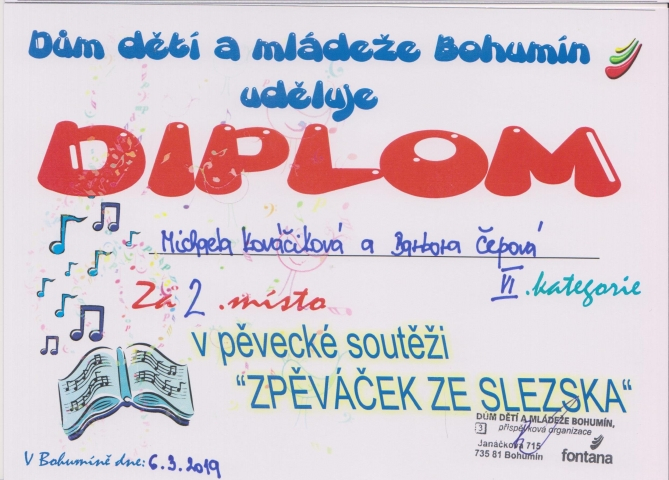 Dům dětí a mládeže Bohumín
uděluje
DIPLOM
Michaela Kováčiková a Barbora Čepová
Za 2 .místo VI .kategorie
v pěvecké soutěži
"ZPĚVÁČEK ZE SLEZSKA"
DŮM DĚTÍ A MLÁDEŽE BOHUMÍN,
3 příspěvková organizace
Janáčkova 715
735 81 Bohumín fontana
V Bohumíně dne: 6.3.2019